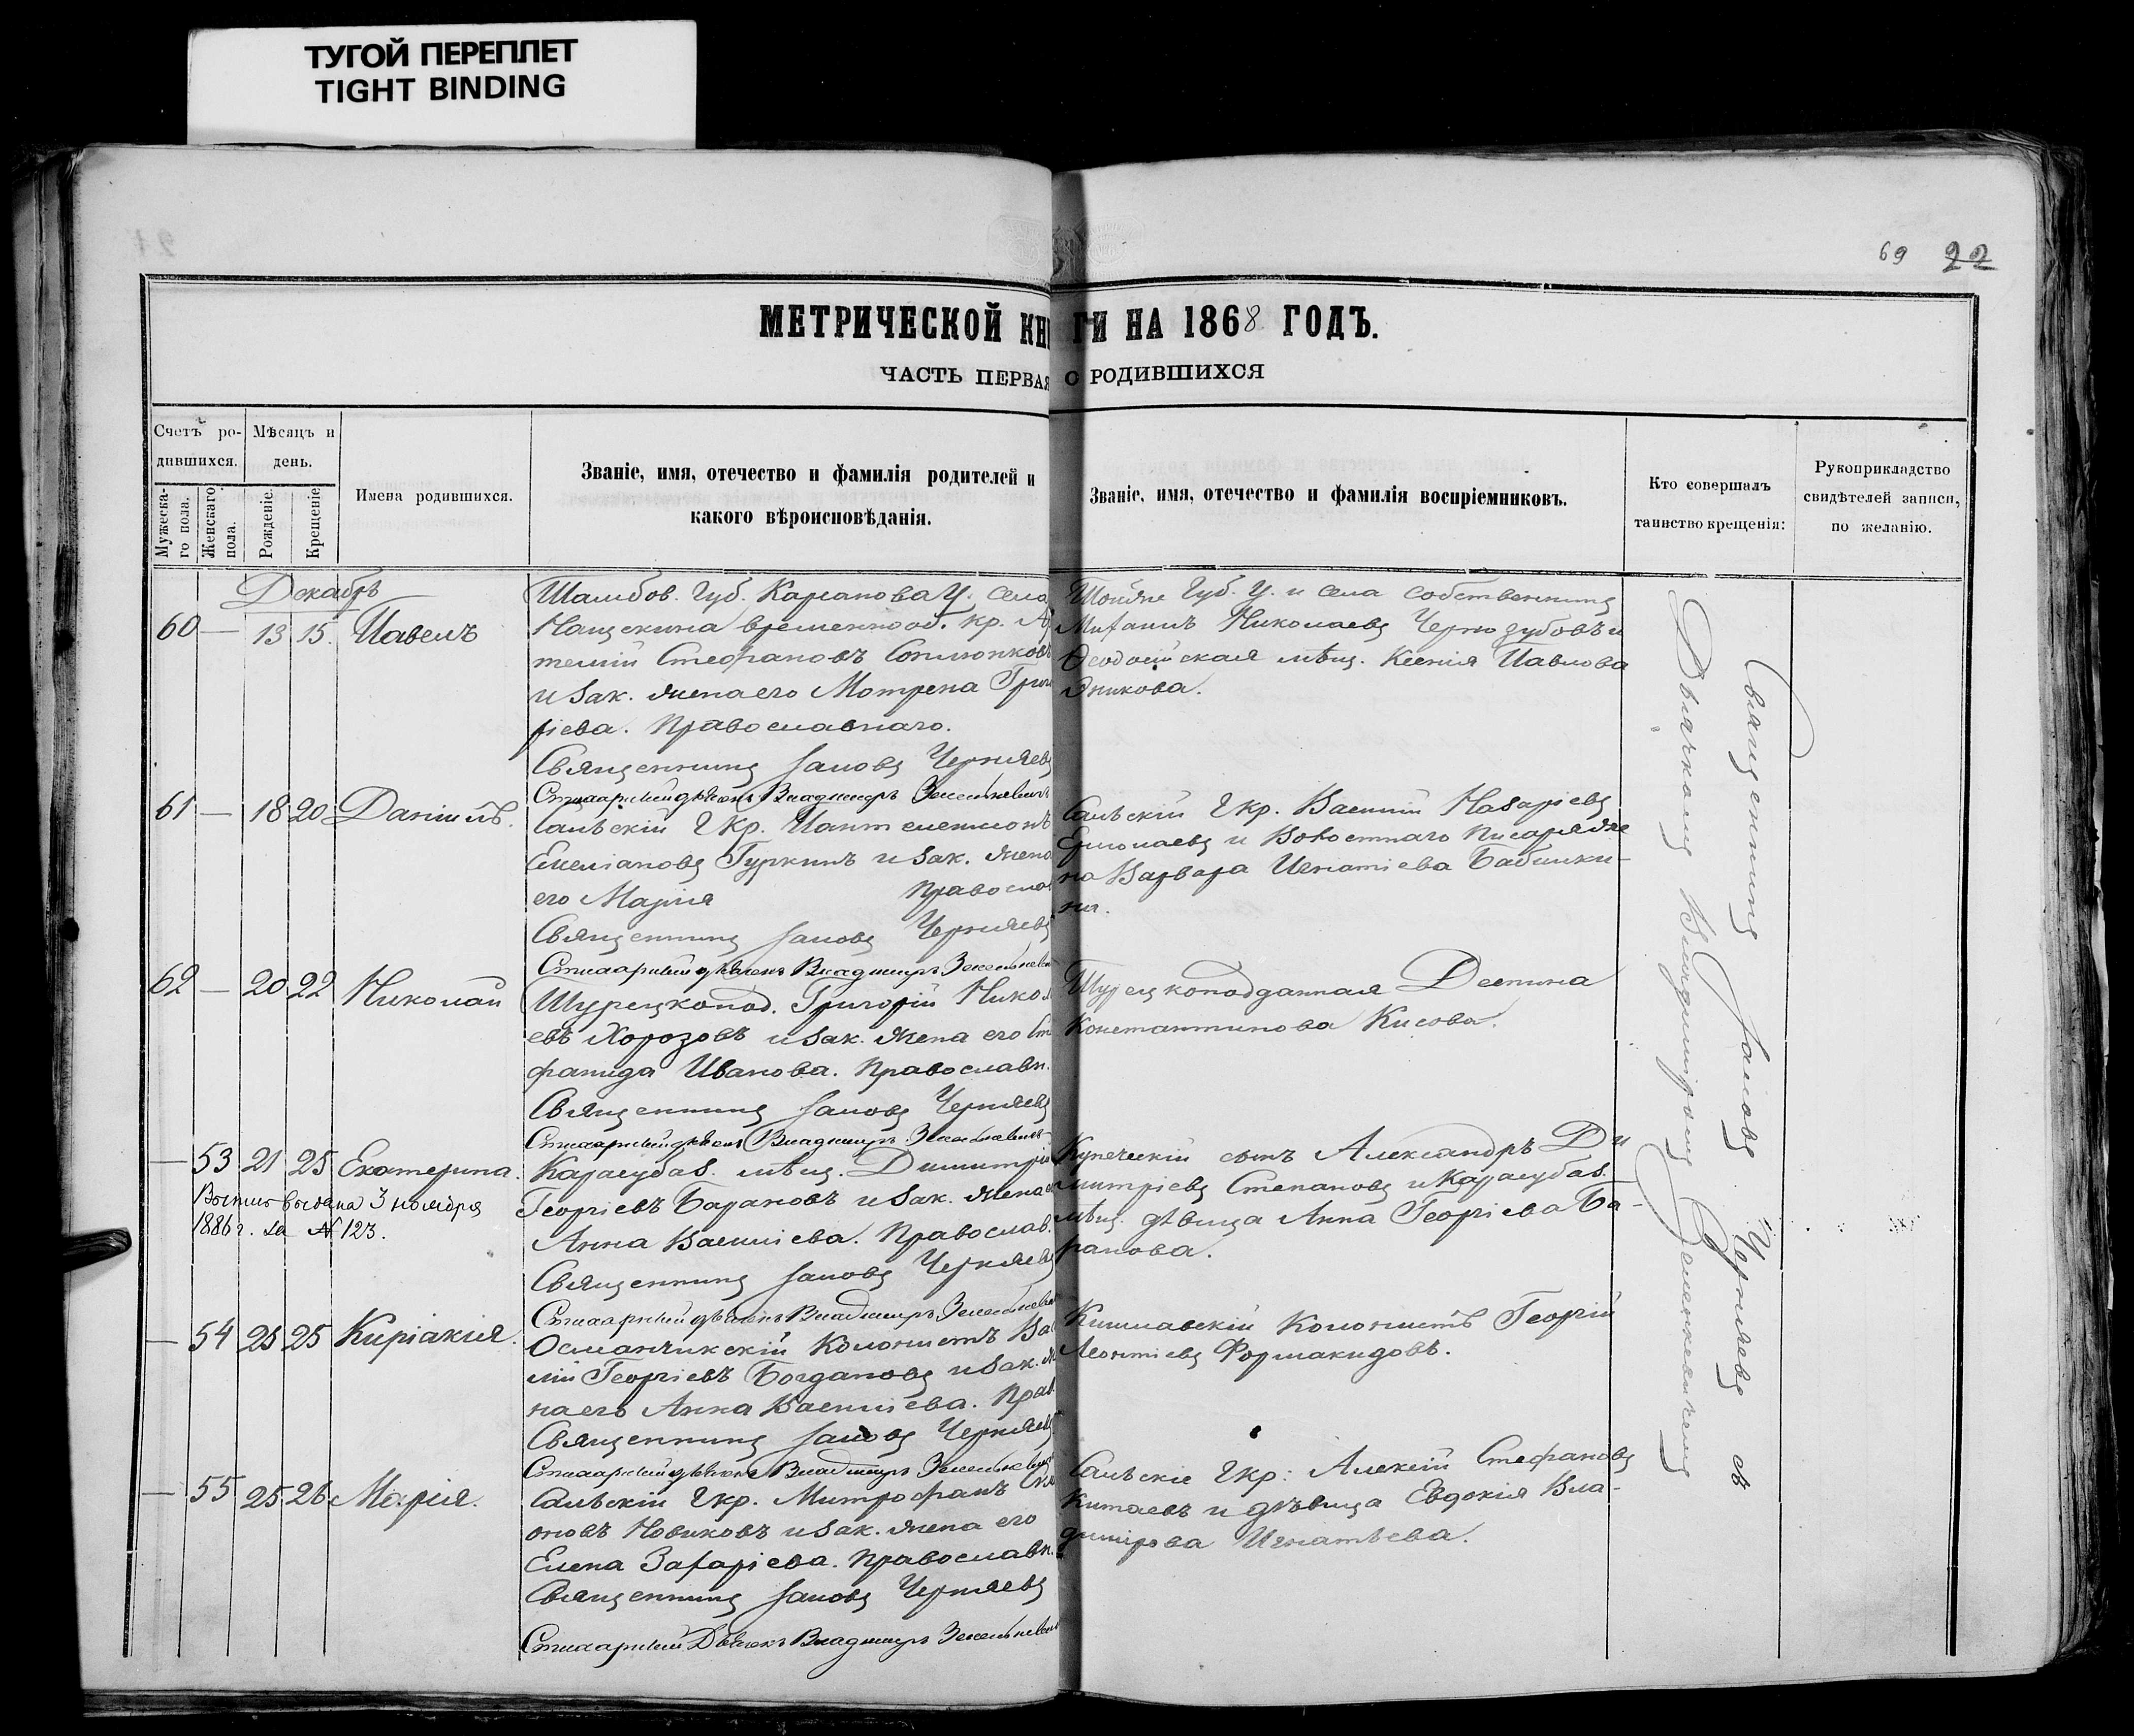 ТУГОЙ ПЕРЕПЛЕТ
TIGHT BINDING
69 22
МЕТРИЧЕСКОЙ КНИГИ НА 1868 ГОДЪ.
ЧАСТЬ ПЕРВАЯ О РОДИВШИХСЯ
Счетъ ро-
дившихся.
Мужеска-
го пола.
Женскаго
пола.
Мѣсяцъ и
день.
Рожденіе.
Крещеніе
Имена родившихся.
Званіе, имя, отечество и фамилія родителей и
какого вѣроисповѣданія.
Званіе, имя, отечество и фамилія воспріемниковъ.
Кто совершалъ
таинство крещенія:
Рукоприкладство
свидѣтелей записи,
по желанію.
Декабрь
60 — 13 15 Павелъ
Тамбов. Губ. У. села
Нащекина временнооб. кр. Ар
темій Стефановъ
и зак. жена его Мотрена Григо
рьева. Православнаго.
Священникъ Іаковъ Черняевъ
Стихарный дьячекъ Владиміръ Зеленкевичъ
Губ. У. и села собственникъ
Михаилъ Николаевъ Чернозубовъ и
Ѳеодосійская мѣщ. Ксенія Павлова
61 — 18 20 Даніилъ.
Сальскій Г. Кр. Пантелеимонъ
Емеліановъ Гуркинъ и зак. жена
его Марія Правосла
Священникъ Іаковъ Черняевъ
Стихарный дьячекъ Владиміръ Зеленкевичъ
Кр. Василій Назаріевъ
Ермолаевъ и Волостнаго Писаря же
на Варвара Игнатіева Бабишки-
на.
62 — 20 22 Николай
Турецкопод. Григорій Никола
евъ Хорозовъ и зак. жена его Ст
фанида Иванова. Православн.
Священникъ Іаковъ Черняевъ
Стихарный дьячекъ Владиміръ Зеленкевичъ
Турецкоподданная Деспина
Константинова Кисова.
— 53 21 25 Екатерина.
Выпись выдана 3 ноября
1886 г. за № 123.
Карасубаз. мѣщ. Димитрій
Георгіевъ Барановъ и зак. жена е
Анна Василіева. Православ.
Священникъ Іаковъ Черняевъ
Стихарный дьячекъ Владиміръ Зеленкевичъ
Купеческій сынъ Александръ Ди
митріевъ Степановъ и Карасубаз.
мѣщ. дѣвица Анна Георгіева Ба-
ранова.
— 54 25 25 Киріакія.
Османчикскій Колонистъ Ва
лій Георгіевъ Богдановъ и зак. же
на его Анна Василіева. Прав.
Священникъ Іаковъ Черняевъ
Стихарный дьячекъ Владиміръ Зеленкевичъ
Кишлавскій Колонистъ Георгій
Леонтіевъ Формакидовъ.
— 55 25 26 Марія.
Сальскій Г. кр. Митрофанъ
оновъ Новиковъ и зак. жена его
Елена Захаріева. Православн.
Священникъ Іаковъ Черняевъ
Стихарный Дьячекъ Владиміръ Зеленкевичъ
Кр: Алексій Стефановъ
Китаевъ и дѣвица Евдокія Вла-
димірова Игнатьева.
Священникъ Іаковъ Черняевъ съ
Дьячкомъ Владиміромъ Зеленкевичемъ